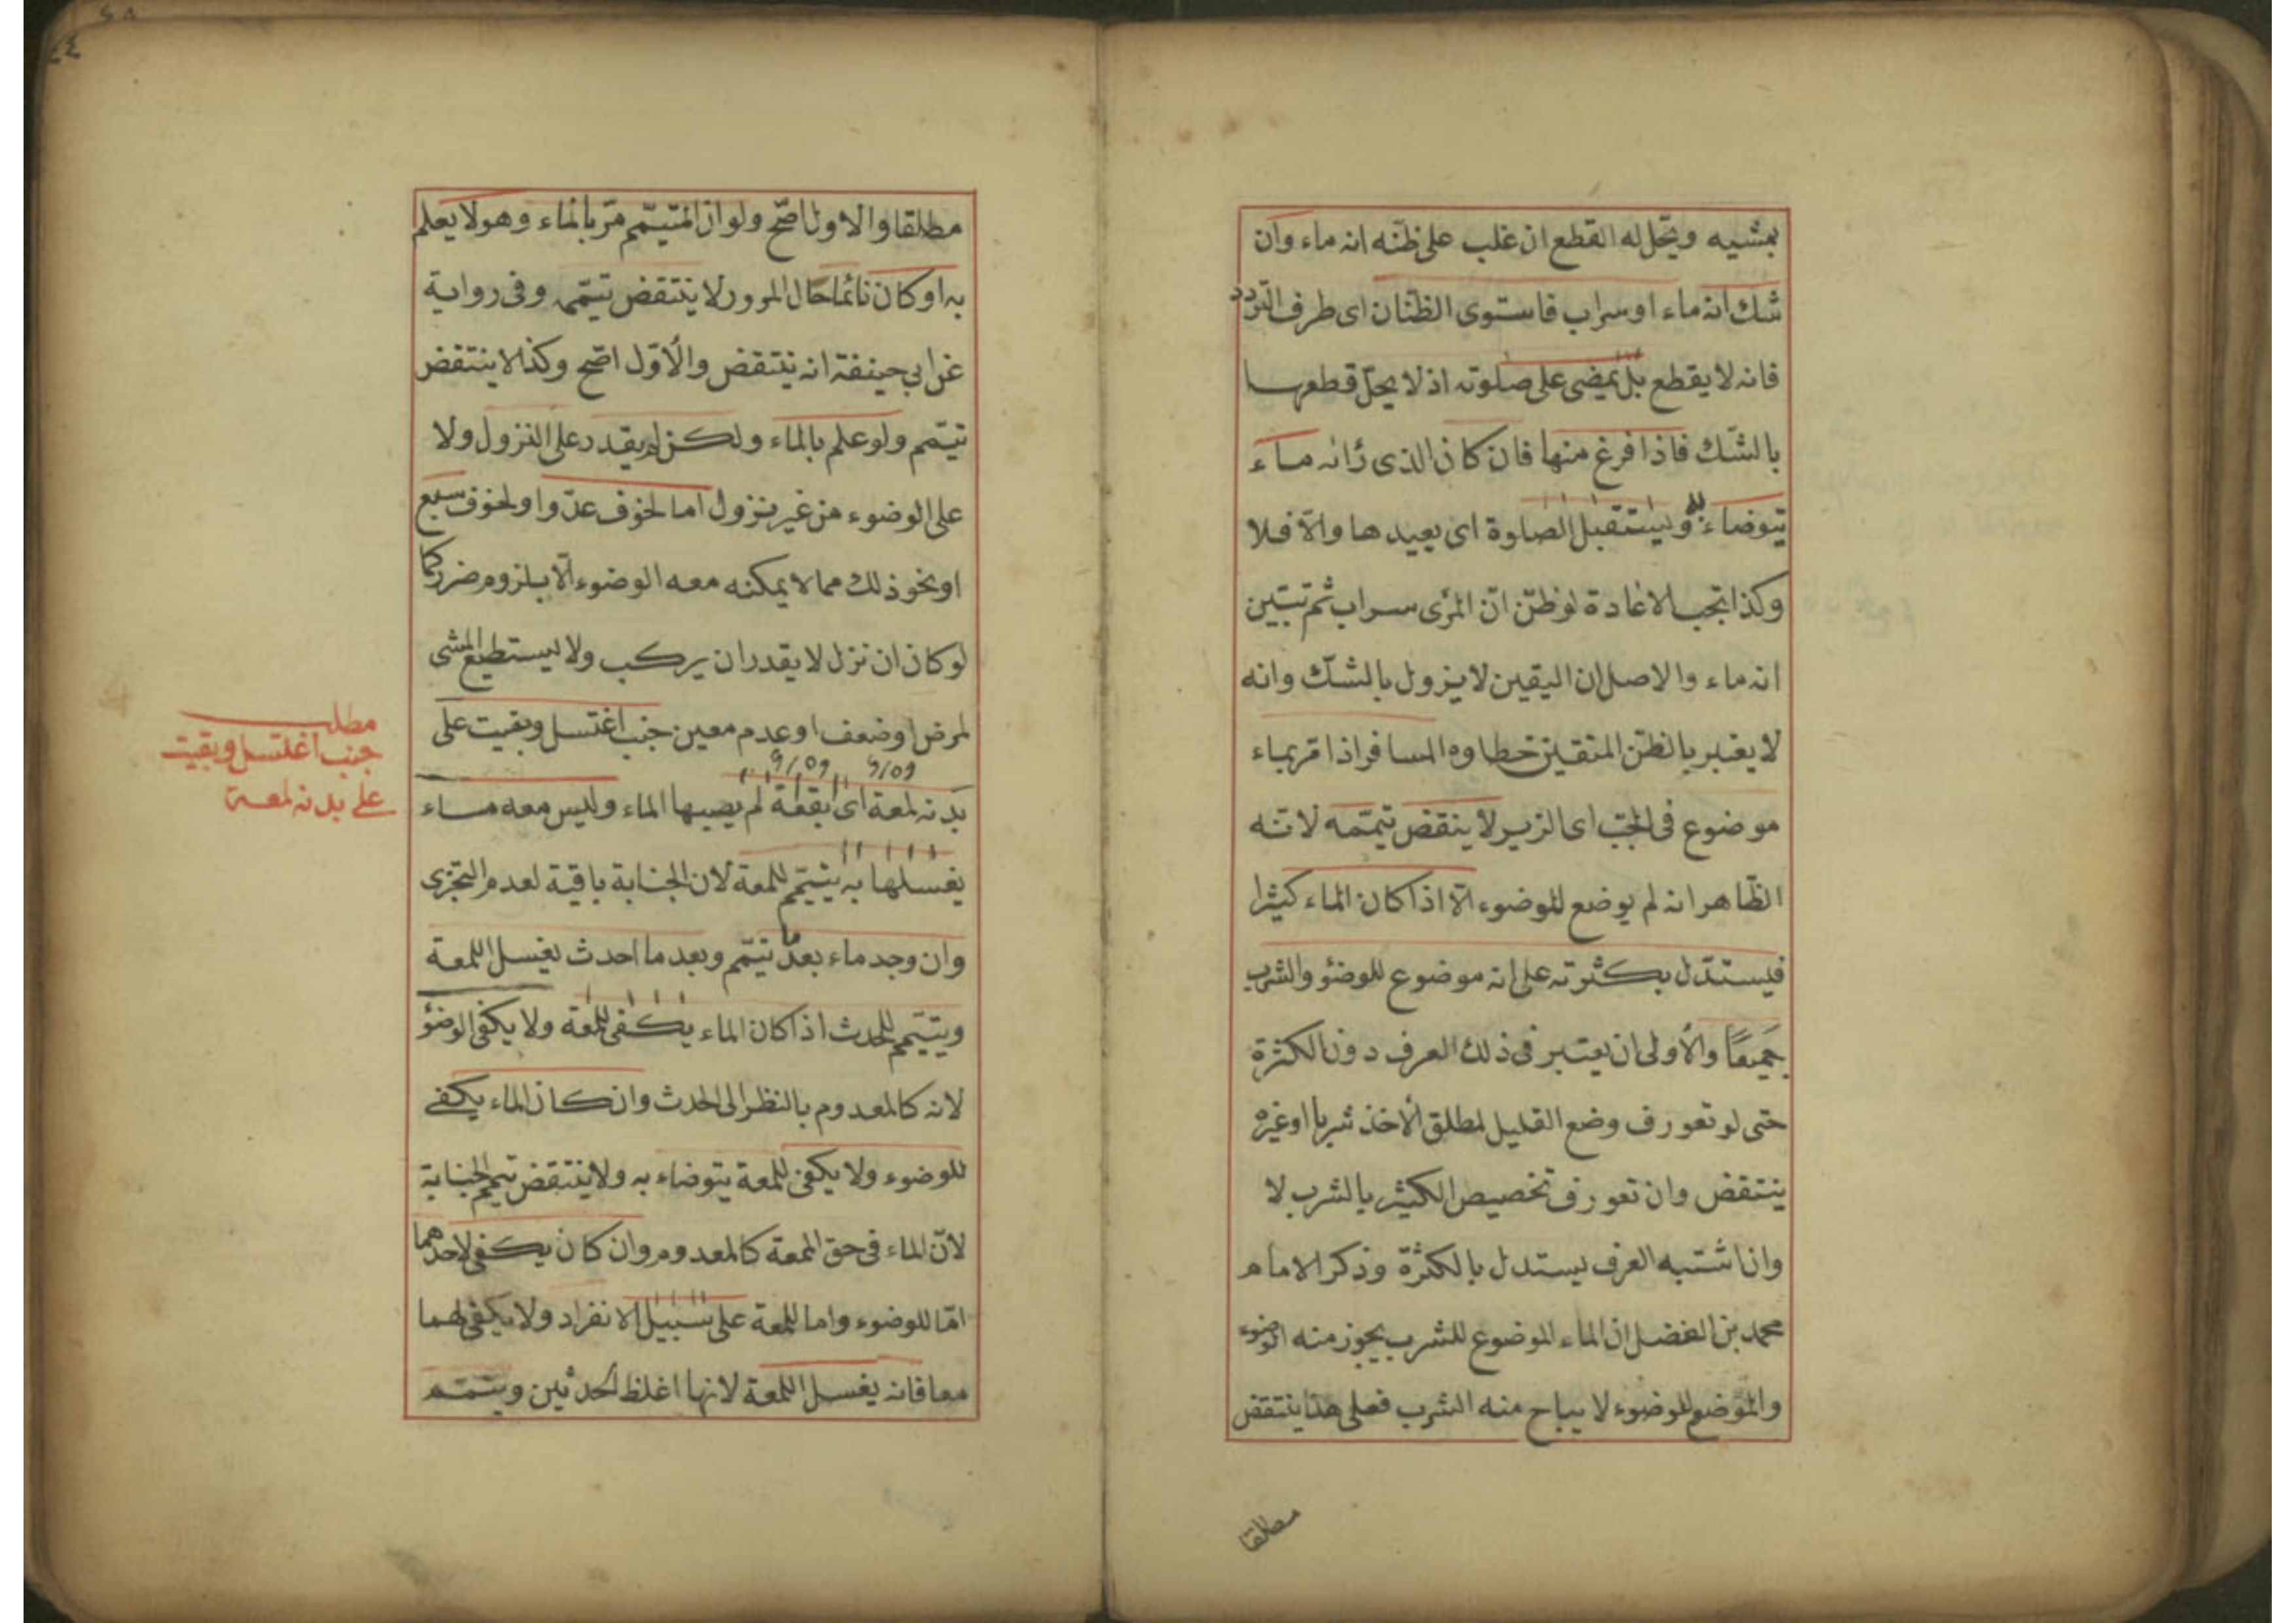 بمشيه ويحل له القطع ان غلب على ظنه انه ماء وان
شك انه ماء او سراب فاستوى الظنان اى طرف التردد
فانه لا يقطع بل يمضى على صلوته اذ لا يحل قطعها
بالشك فاذا فرغ منها فان كان الذى رأنه ماء
يتوضاء به ويستقبل الصلوة اى يعيدها والا فلا
وكذا تجب الاعادة لو ظن ان المرئى سراب ثم تبين
انه ماء والاصل ان اليقين لا يزول بالشك وانه
لا يعتبر بالظن المتقين خطاوه المسافر اذا مر بماء
موضوع فى الجب اى الزير لا ينقض تيممه لانه
الظاهر انه لم يوضع للوضوء الا اذا كان الماء كثيرا
فيستدل بكثرته على انه موضوع للوضؤ والشرب
جميعًا والأولى ان يعتبر فى ذلك العرف دون الكثرة
حتى لو تعورف وضع القليل لمطلق الاخذ شربا او غيره
ينتقض وان تعورف تخصيص الكثير بالشرب لا
وان اشتبه العرف يستدل بالكثرة وذكر الامام
محمد بن الفضل ان الماء الموضوع للشرب يجوز منه الوضوء
والموضوع للوضوء لا يباح منه الشرب فعلى هذا ينتقض
مطلقا
مطلقا والاول اصح ولو ان المتيمم مر بالماء وهو لا يعلم
به او كان نائما حال المرور لا ينتقض تيممه وفى رواية
عن ابي حنيفة انه ينتقض والأول اصح وكذا لا ينتقض
تيمم ولو علم بالماء ولكن لم يقدر على النزول ولا
على الوضوء من غير نزول اما لخوف عدو او لخوف سبع
او نحو ذلك مما لا يمكنه معه الوضوء الا بلزوم ضرر كما
لو كان ان نزل لا يقدر ان يركب ولا يستطيع المشى
لمرض او ضعف او عدم معين جنب اغتسل وبقيت على
بدنه لمعة اى بقعة لم يصيبها الماء وليس معه ماء
يغسلها به يتيمم للمعة لان الجنابة باقية لعدم التجزى
وان وجد ماء بعد ما تيمم وبعد ما احدث يغسل اللمعة
ويتيمم للحدث اذا كان الماء يكفى للمعة ولا يكفى الوضؤ
لانه كالمعدوم بالنظر الى الحدث وان كان الماء يكفى
للوضوء ولا يكفى للمعة يتوضاء به ولا ينتقض تيمم الجنابة
لان الماء فى حق اللمعة كالمعدوم وان كان يكفى لاحدهما
اما للوضوء واما للمعة على سبيل الانفراد ولا يكفى لهما
معا فانه يغسل اللمعة لانها اغلظ الحدثين ويتيمم
مطلب
جنب اغتسل وبقيت
على بدنه لمعة